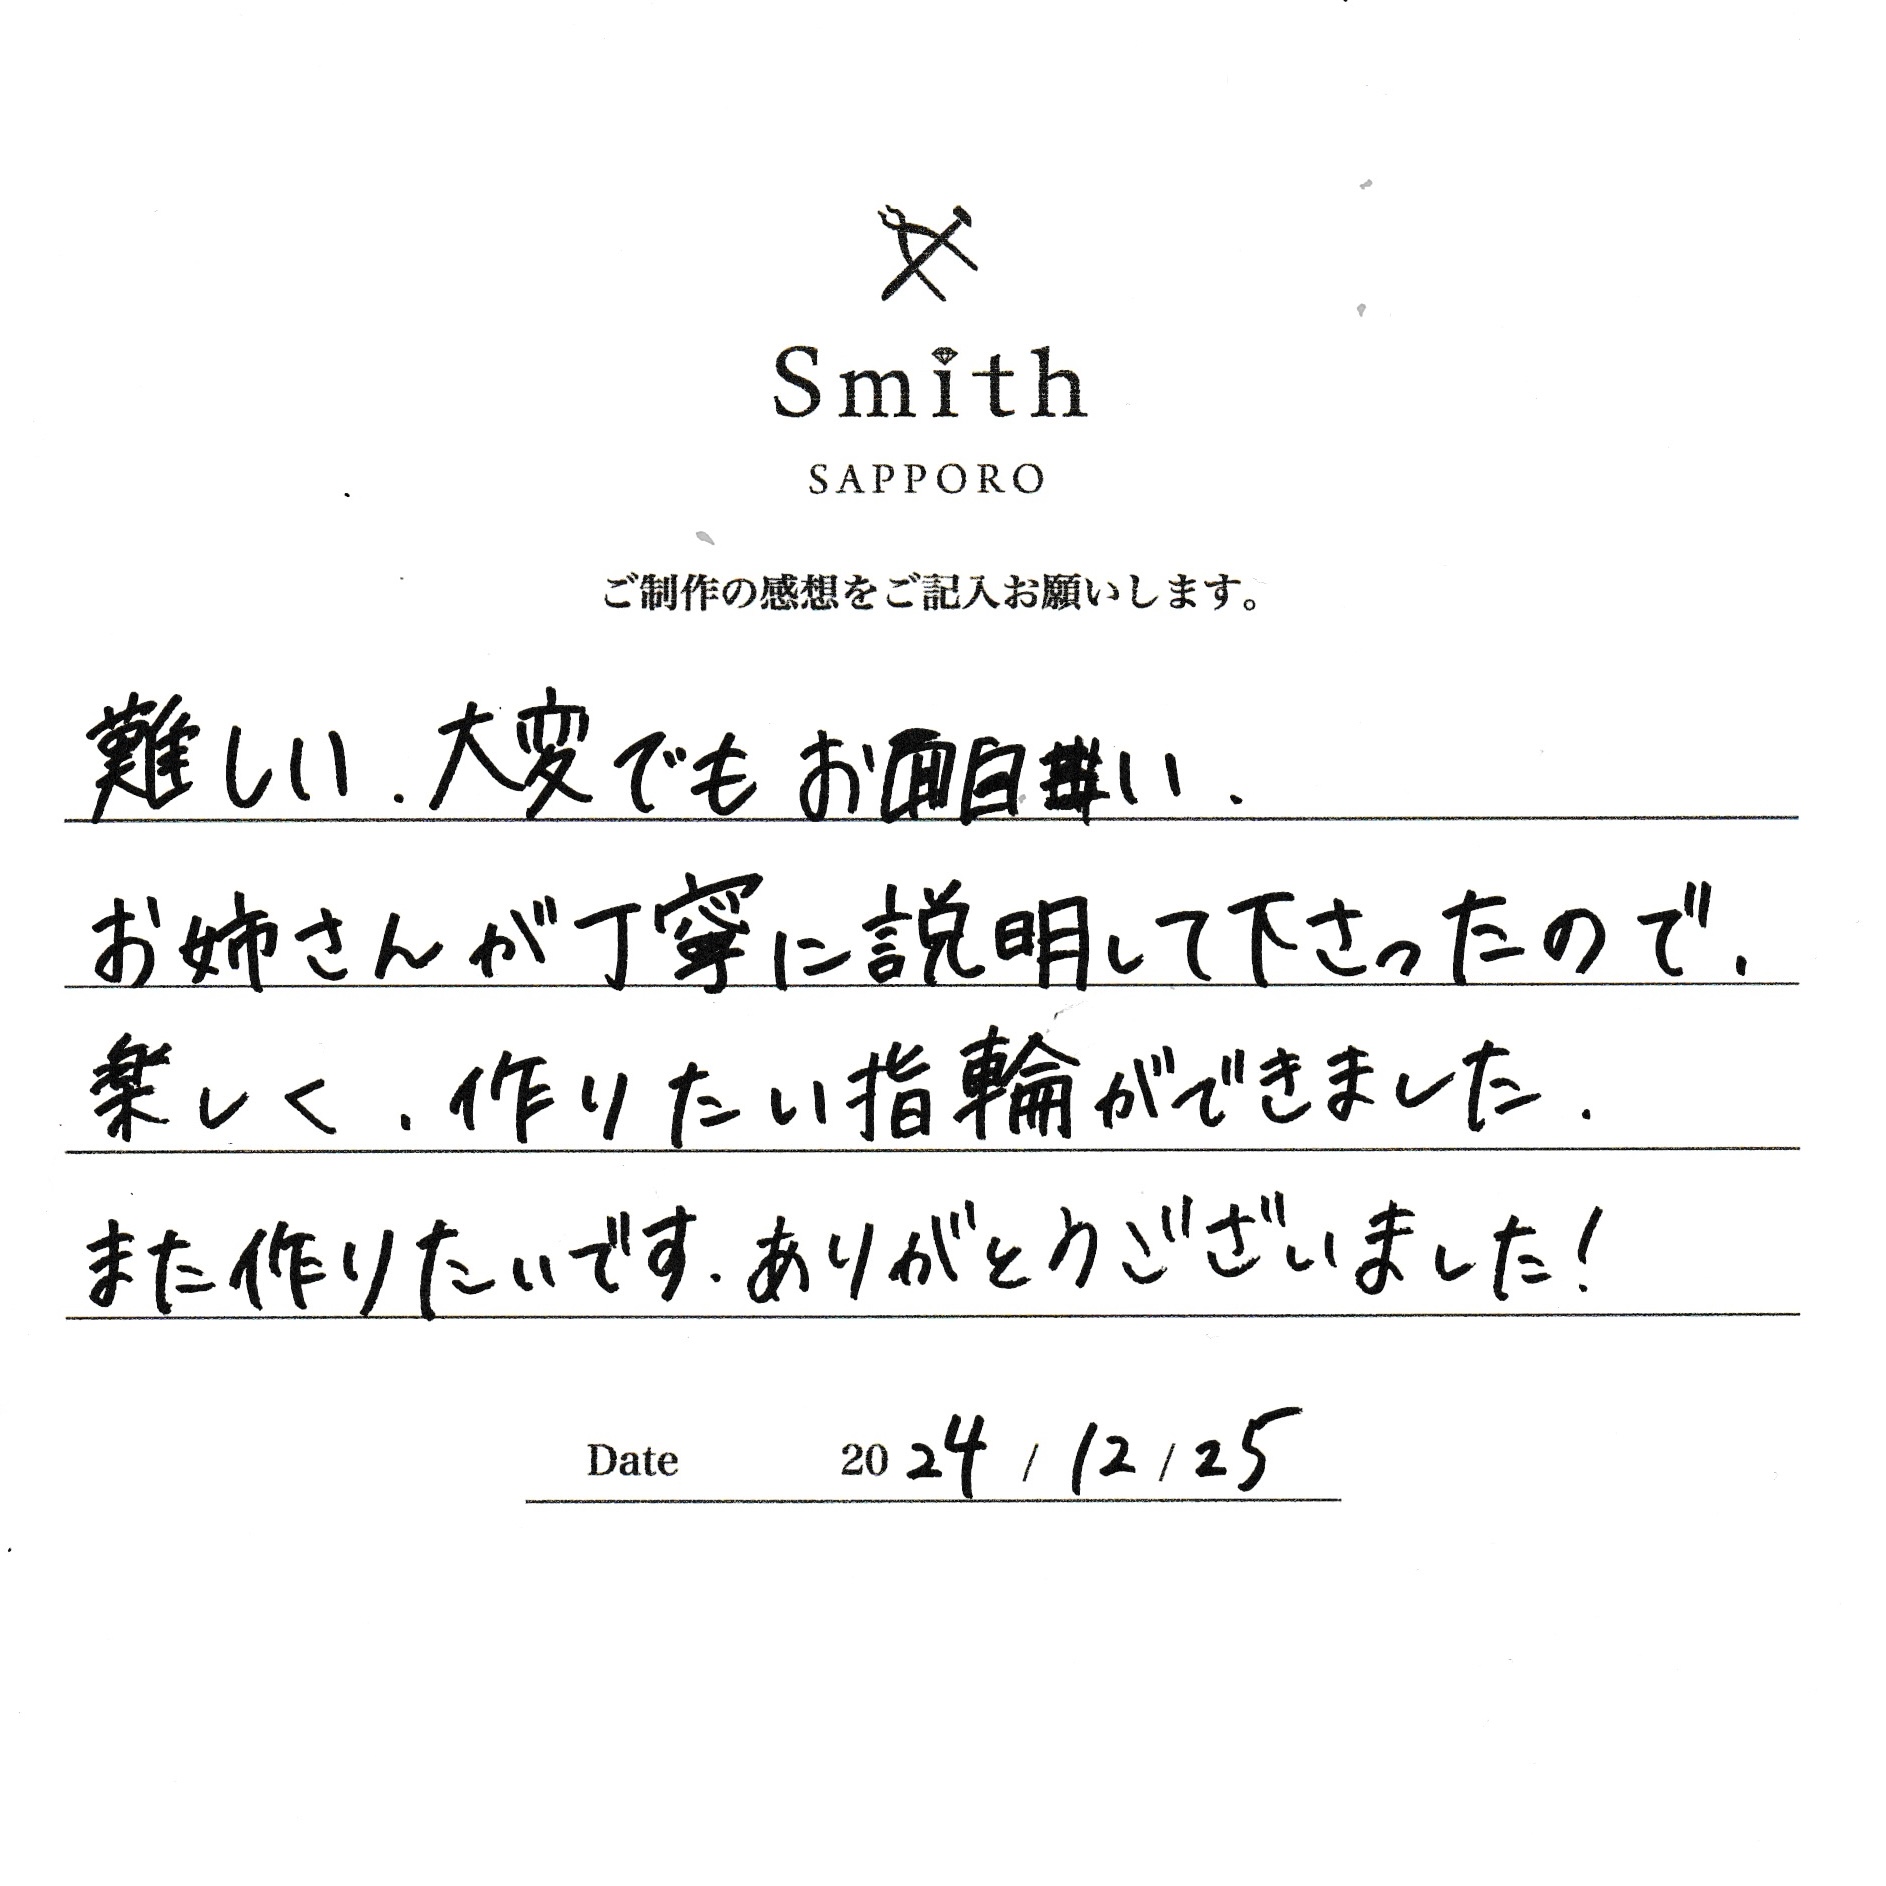 Smith
SAPPORO
ご制作の感想をご記入お願いします。
難しい.大変でもお面白い.
お姉さんが丁寧に説明して下さったので.
楽しく.作りたい指輪ができました.
また作りたいです.ありがとうございました!
Date 2024/12/25